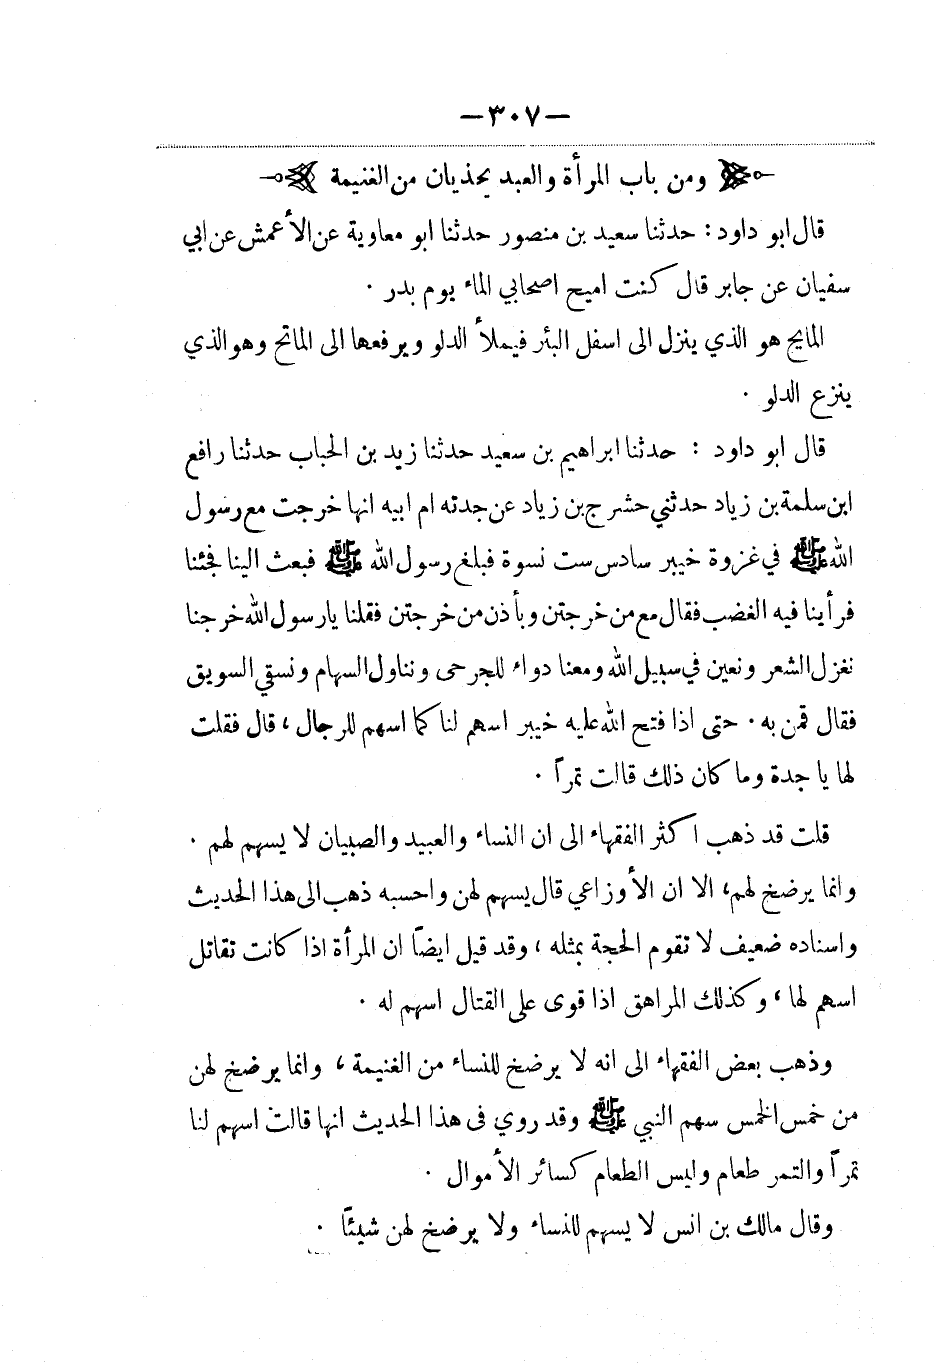 —٣٠٧—
ومن باب المرأة والعبد يحذيان من الغنيمة
قال ابو داود : حدثنا سعيد بن منصور حدثنا ابو معاوية عن الأعمش عن ابي
سفيان عن جابر قال كنت اميح اصحابي الماء يوم بدر ·
المايح هو الذي ينزل الى اسفل البئر فيملأ الدلو ويرفعها الى الماتح وهو الذي
ينزع الدلو ·
قال ابو داود : حدثنا ابراهيم بن سعيد حدثنا زيد بن الحباب حدثنا رافع
ابن سلمة بن زياد حدثني حشرج بن زياد عن جدته ام ابيه انها خرجت مع رسول
الله ﷺ في غزوة خيبر سادس ست نسوة فبلغ رسول الله ﷺ فبعث الينا فجئنا
فرأينا فيه الغضب فقال مع من خرجتن وبأذن من خرجتن فقلنا يارسول الله خرجنا
نغزل الشعر ونعين في سبيل الله ومعنا دواء للجرحى ونناول السهام ونسقي السويق
فقال قمن به · حتى اذا فتح الله عليه خيبر اسهم لنا كما اسهم للرجال ، قال فقلت
لها يا جدة وما كان ذلك قالت تمراً ·
قلت قد ذهب اكثر الفقهاء الى ان النساء والعبيد والصبيان لا يسهم لهم ·
وانما يرضخ لهم، الا ان الأوزاعي قال يسهم لهن واحسبه ذهب الى هذا الحديث
واسناده ضعيف لا تقوم الحجة بمثله ، وقد قيل ايضاً ان المرأة اذا كانت تقاتل
اسهم لها ، وكذلك المراهق اذا قوى على القتال اسهم له ·
وذهب بعض الفقهاء الى انه لا يرضخ للنساء من الغنيمة ، وانما يرضخ لهن
من خمس الخمس سهم النبي ﷺ وقد روي في هذا الحديث انها قالت اسهم لنا
تمراً والتمر طعام وليس الطعام كسائر الأموال ·
وقال مالك بن انس لا يسهم للنساء ولا يرضخ لهن شيئاً ·